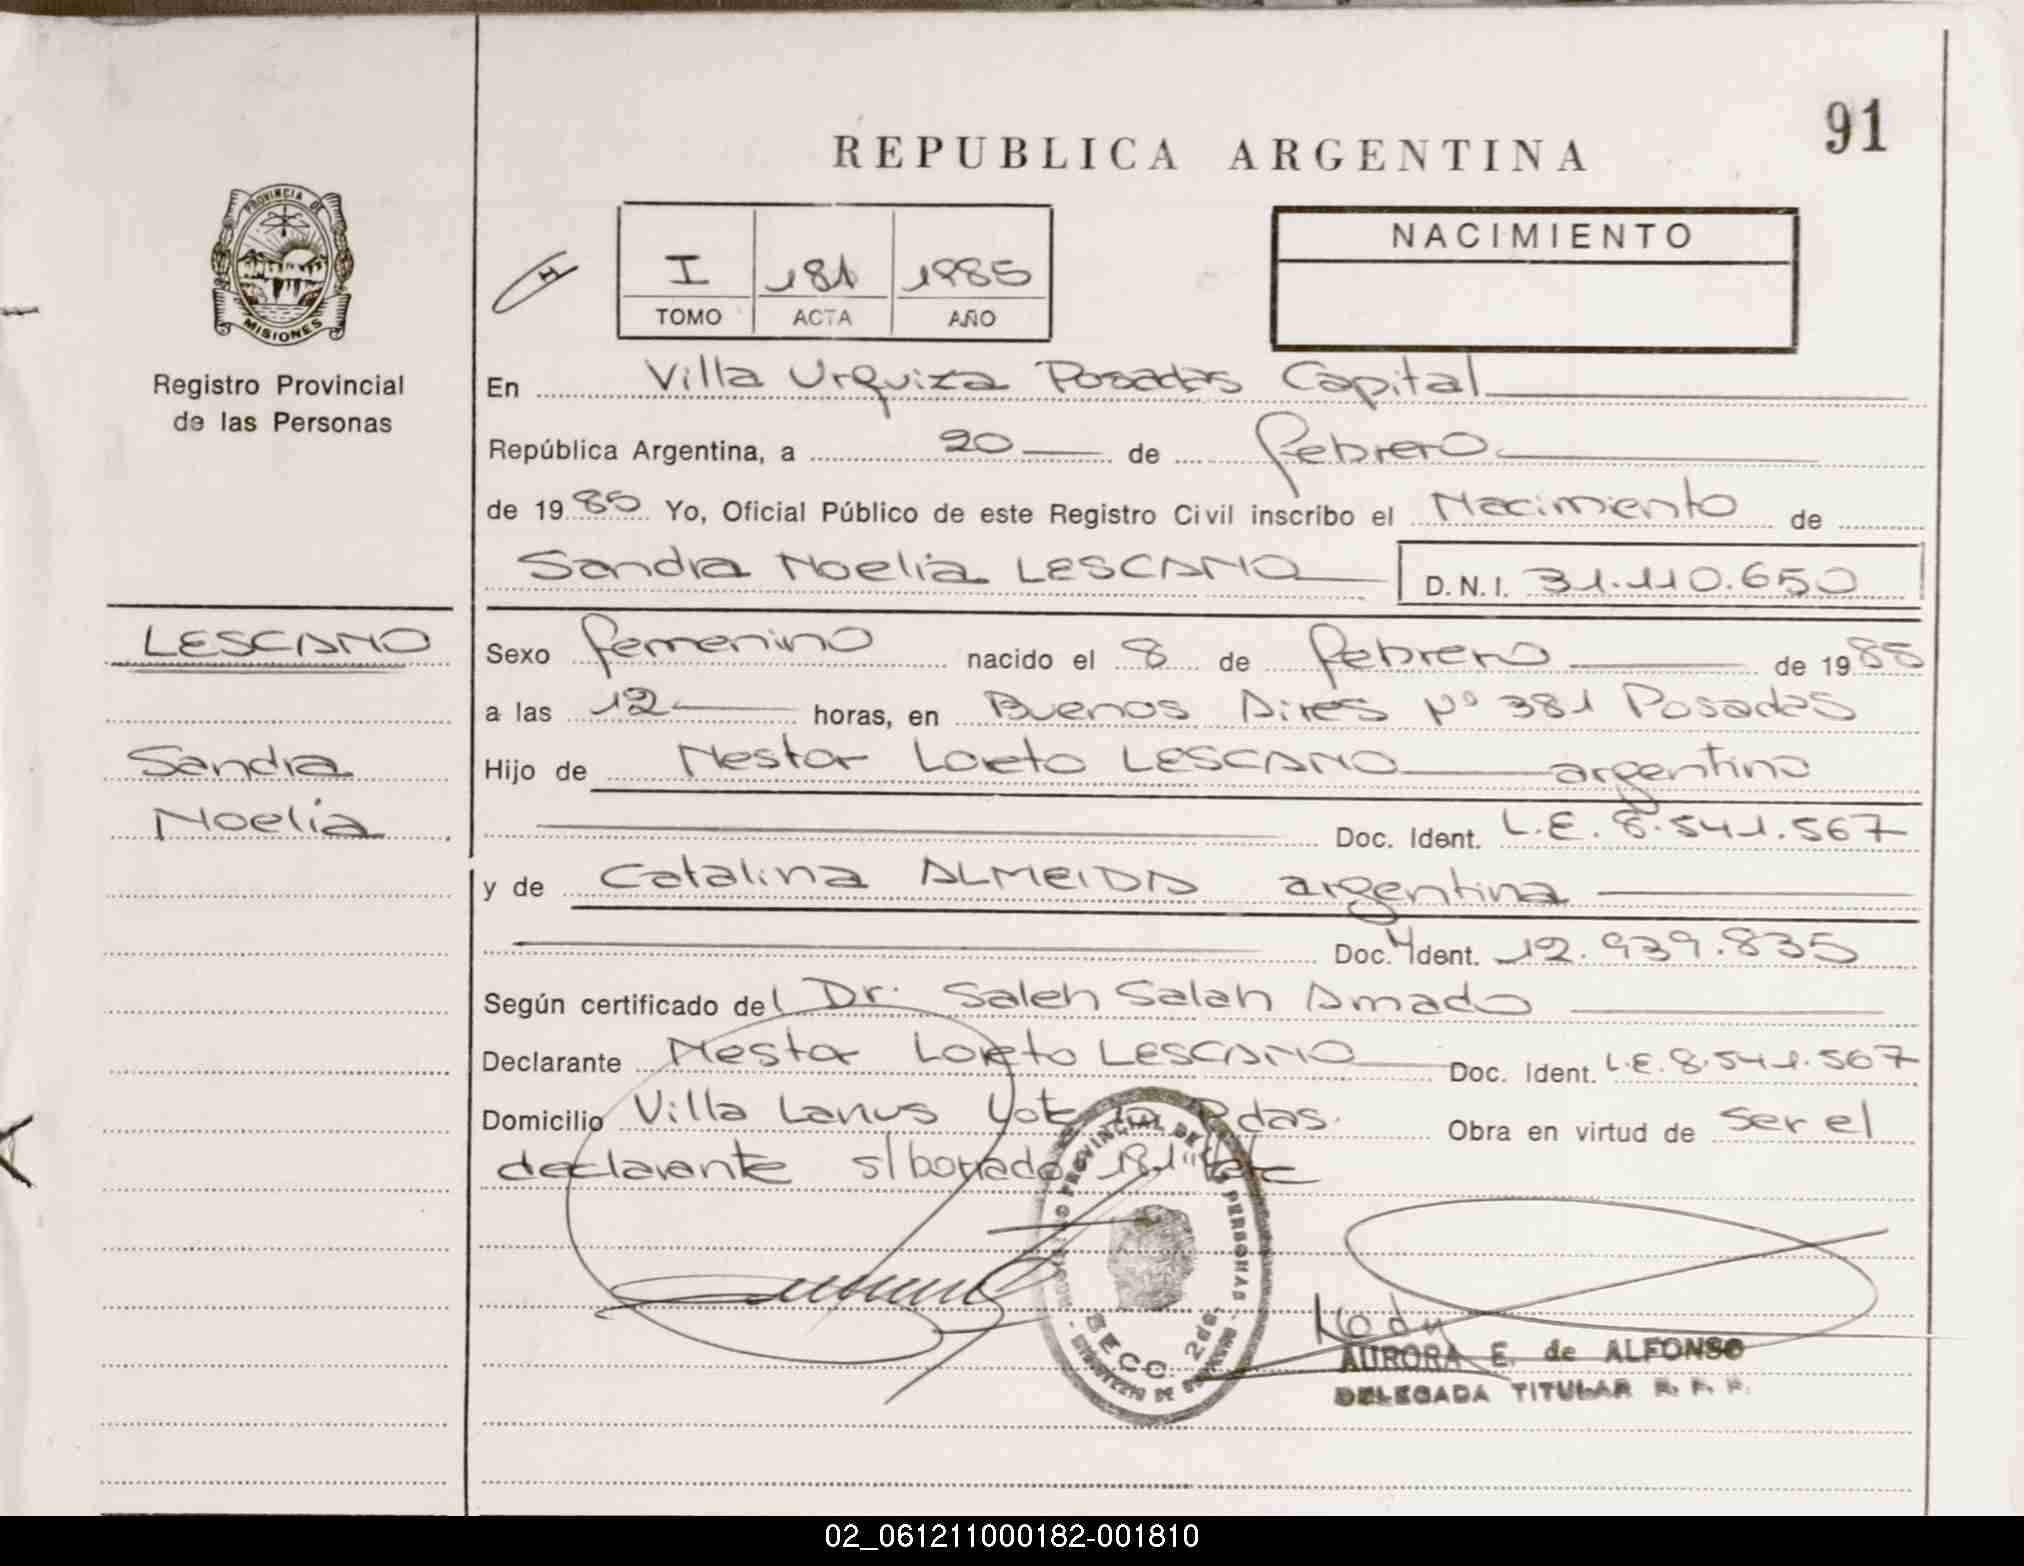 91
REPUBLICA ARGENTINA
PROVINCIA DE
MISIONES
Registro Provincial
de las Personas
I 181 1985
TOMO ACTA AÑO
NACIMIENTO
En Villa Urquiza Posadas Capital
República Argentina, a 20 de febrero
de 1985 Yo, Oficial Público de este Registro Civil inscribo el Nacimiento de
Sandra Noelia LESCANO D.N.I. 31.110.650
LESCANO
Sandra
Noelia
Sexo femenino nacido el 8 de febrero de 1985
a las 12 horas, en Buenos Aires Nº 381 Posadas
Hijo de Nestor Loreto LESCANO argentino
Doc. Ident. L.E. 8.541.567
y de Catalina ALMEIDA argentina
Doc. Ident. 12.939.835
Según certificado del Dr. Saleh Salah Amado
Declarante Nestor Loreto LESCANO Doc. Ident. L.E. 8.541.567
Domicilio Villa Lanus Pdas. Obra en virtud de ser el
declarante s/borrado
PROVINCIAL DE LAS PERSONAS
SECC. 2da.
AURORA E. de ALFONSO
DELEGADA TITULAR R. P. P.
02_061211000182-001810